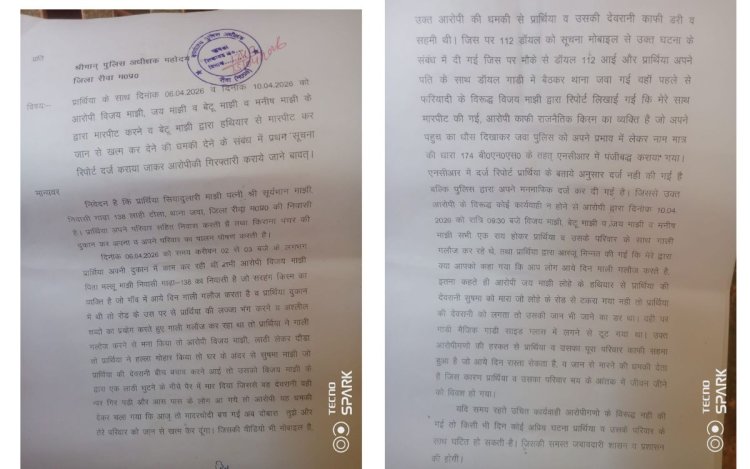 प्रति
श्रीमान् पुलिस अधीक्षक महोदय
जिला रीवा म०प्र०
विषयः-
प्रार्थिया के साथ दिनांक 06.04.2026 व दिनांक 10.04.2026 को
आरोपी विजय माझी, जय माझी व बेटू माझी व मनीष माझी के
द्वारा मारपीट करने व बेटू माझी द्वारा हथियार से मारपीट कर
जान से खत्म कर देने की धमकी देने के संबंध में प्रथम सूचना
रिपोर्ट दर्ज कराया जाकर आरोपीकी गिरफ्तारी कराये जाने बावत्।
मान्यवर
निवेदन है कि प्रार्थिया सियादुलारी माझी पत्नी श्री सूर्यभान माझी,
निवासी गाढा 138 लाही टोला, थाना जवा, जिला रीवा म०प्र० की निवासी
है। प्रार्थिया अपने परिवार सहित निवास करती है तथा किराना वगैर की
दुकान कर अपना व अपने परिवार का पालन पोषण करती है।
दिनांक 06.04.2026 को समय करीबन 02 से 03 बजे के लगभग
प्रार्थिया अपनी दुकान में काम कर रही थी तभी आरोपी विजय माझी
पिता मल्लू माझी निवासी गाढा-138 का निवासी है जो सरहंग किस्म का
व्यक्ति है जो गाँव में आये दिन गाली गलौज करता है व प्रार्थिया दुकान
में थी तो रोड के उस पर से प्रार्थिया की लज्जा भंग करने व अश्लील
शब्दों का प्रयोग करते हुए गाली गलौज कर रहा था तो प्रार्थिया ने गाली
गलौज करने से मना किया तो आरोपी विजय माझी, लाठी लेकर दौडा
तो प्रार्थिया ने हल्ला गोहार किया तो घर के अंदर से सुषमा माझी जो
प्रार्थिया की देवरानी बीच बचाव करने आई तो उसको विजय माझी के
द्वारा एक लाठी घुटने के नीचे पैर में मार दिया जिससे वह देवरानी वही
पर गिर पडी और आस पास के लोग आ गये तो आरोपी यह धमकी
देकर चला गया कि आज तो मादरचोदी बच गई अब दोबारा तुझे और
तेरे परिवार को जान से खत्म कर दूंगा। जिसकी वीडियो भी मोबाइल है,
TECNO
SPARK
उक्त आरोपी की धमकी से प्रार्थिया व उसकी देवरानी काफी डरी व
सहमी थी। जिस पर 112 डॉयल को सूचना मोबाइल से उक्त घटना के
संबंध में दी गई जिस पर मौके से डॉयल 112 आई और प्रार्थिया अपने
पति के साथ डॉयल गाडी में बैठकर थाना जवा गई वहाँ पहले से
फरियादी के विरूद्ध विजय माझी द्वारा रिपोर्ट लिखाई गई कि मेरे साथ
मारपीट की गई, आरोपी काफी राजनैतिक किस्म का व्यक्ति है जो अपने
पहुच का धौस दिखाकर जवा पुलिस को अपने प्रभाव में लेकर नाम मात्र
की धारा 174 बी०एन०एस० के तहत् एनसीआर में पंजीबद्ध कराया गया।
एनसीआर में दर्ज रिपोर्ट प्रार्थिया के बताये अनुसार दर्ज नही की गई है
बल्कि पुलिस द्वारा अपने मनमाफिक दर्ज कर दी गई है। जिससे उक्त
आरोपी के विरूद्ध कोई कार्यवाही न होने से आरोपी द्वारा दिनांक 10.04.
2026 को रात्रि 09:30 बजे विजय माझी, बेटू माझी व जय माझी व मनीष
माझी सभी एक राय होकर प्रार्थिया व उसके परिवार के साथ गाली
गलौज कर रहे थे, तथा प्रार्थिया द्वारा आरजू मिन्नत की गई कि मेरे द्वारा
क्या आपको कहा गया कि आप लोग आये दिन माली गलौज करते है,
इतना कहते ही आरोपी जय माझी लोहे के हथियार से प्रार्थिया की
देवरानी सुषमा को मारा जो लोहे के रोड से टकरा गया नही तो प्रार्थिया
की देवरानी को लगता तो उसकी जान भी जाने का डर था। वही पर
गाडी मैजिक गाडी साइड ग्लास में लगने से टूट गया था। उक्त
आरोपीगणो की हरकत से प्रार्थिया व उसका पूरा परिवार काफी सहमा
हुआ है जो आये दिन रास्ता रोकता है, व जान से मारने की धमकी देता
है जिस कारण प्रार्थिया व उसका परिवार भय के आतंक में जीवन जीने
को विवश हो गया।
यदि समय रहते उचित कार्यवाही आरोपीगणो के विरूद्ध नही की
गई तो किसी भी दिन कोई अप्रिय घटना प्रार्थिया व उसके परिवार के
साथ घटित हो सकती है। जिसकी समस्त जवाबदारी शासन व प्रशासन
की होगी।
TECNO
SPARK